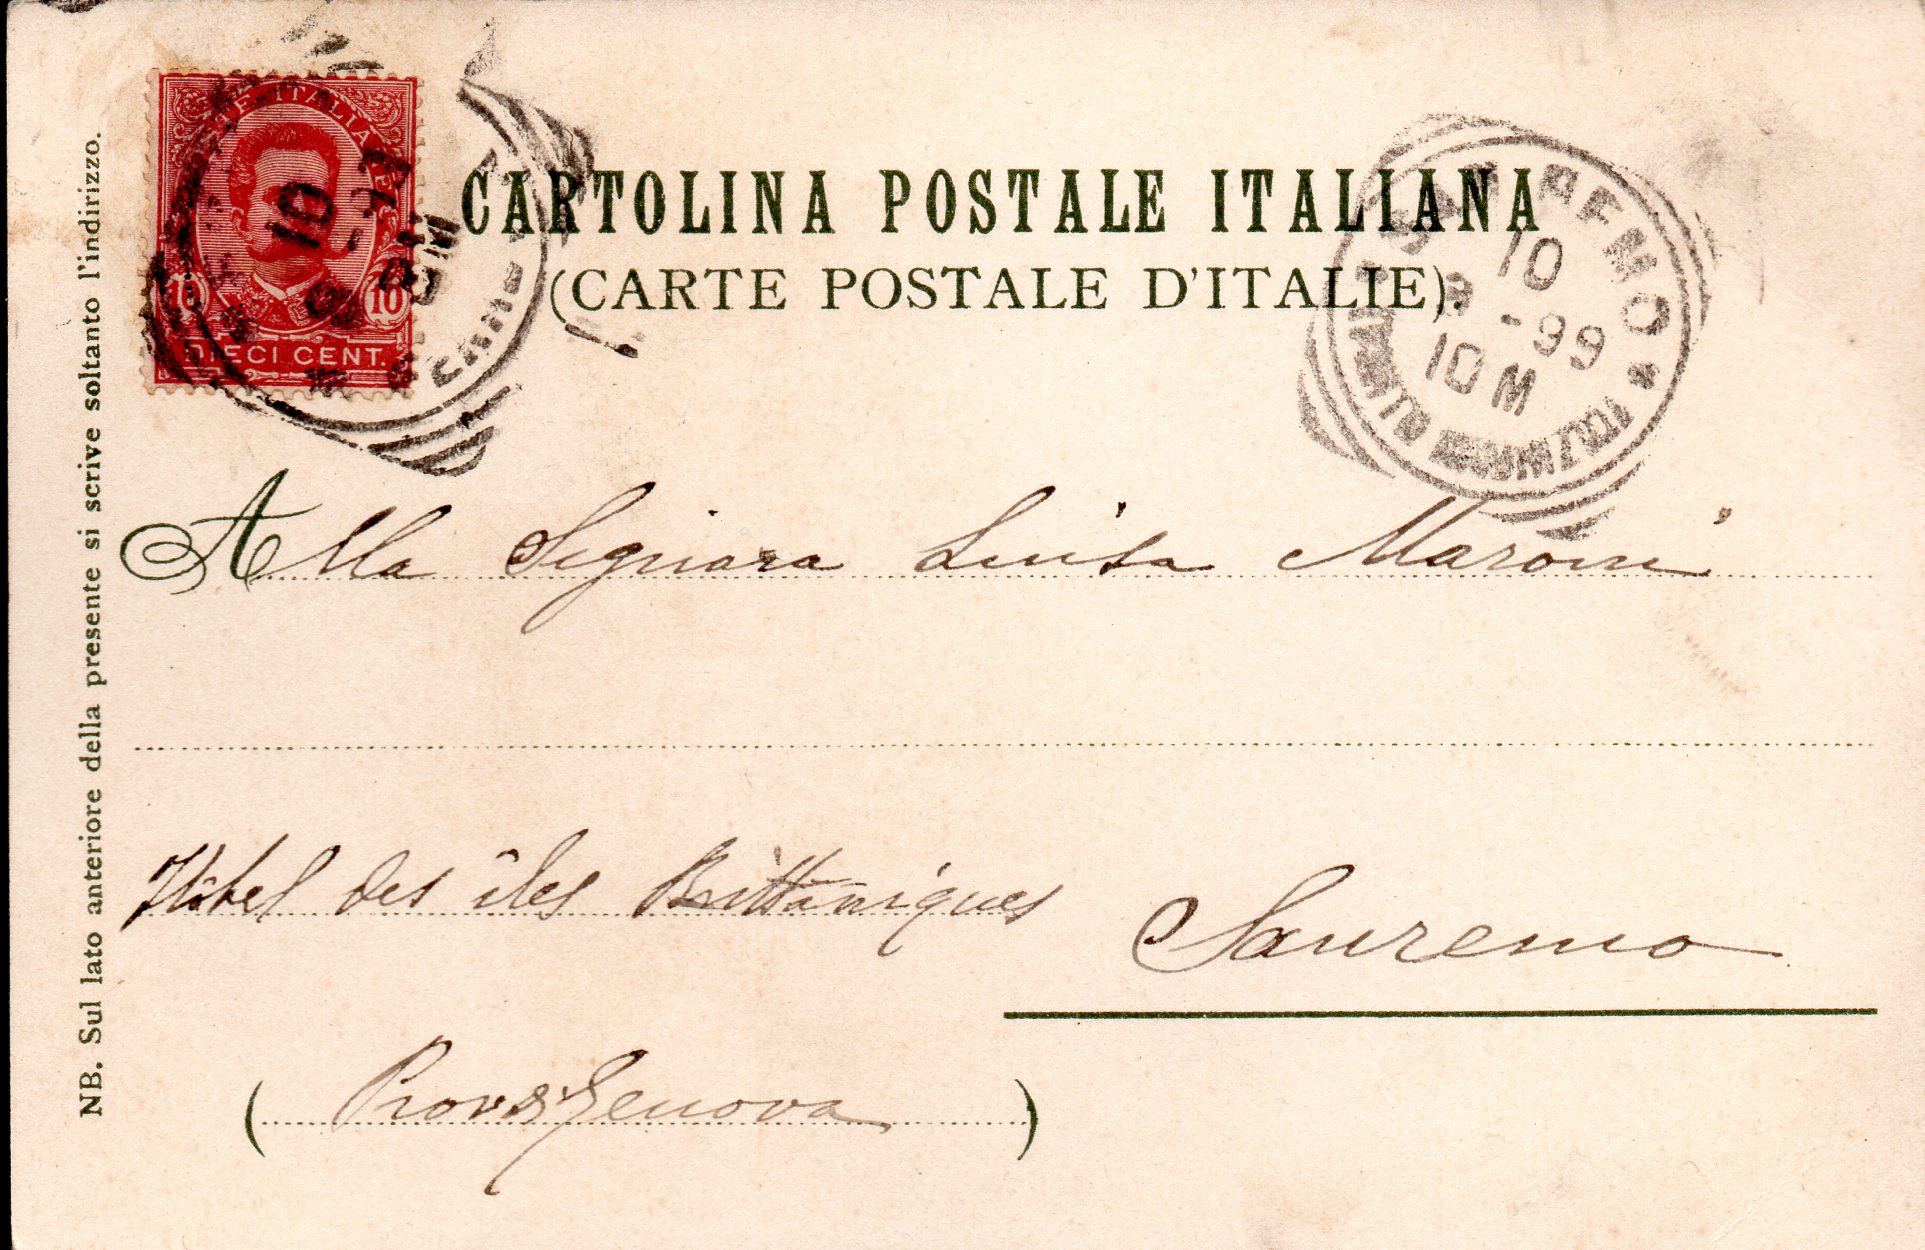 POSTE ITALIANE
10 10
DIECI CENT.
CARTOLINA POSTALE ITALIANA
(CARTE POSTALE D'ITALIE).
SAN REMO
10
3 - 99
10 M
Alla Signora Luisa Maroni
Hôtel des îles Brittaniques
Sanremo
(Prov di Genova)
NB. Sul lato anteriore della presente si scrive soltanto l'indirizzo.